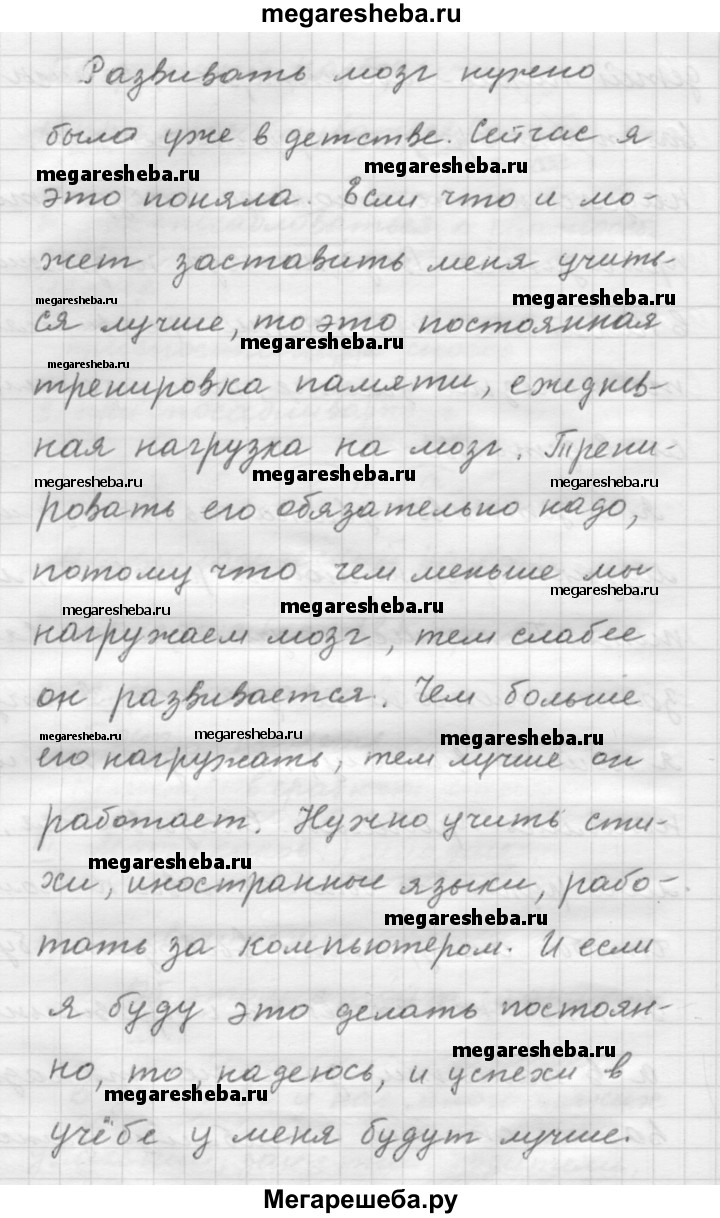 megaresheba.ru
Развивать мозг нужно
было уже в детстве. Сейчас я
megaresheba.ru megaresheba.ru
это поняла. Если что и мо-
жет заставить меня учить-
megaresheba.ru megaresheba.ru
ся лучше, то это постоянная
megaresheba.ru
megaresheba.ru
тренировка памяти, ежеднев-
ная нагрузка на мозг. Трени-
megaresheba.ru megaresheba.ru megaresheba.ru
ровать его обязательно надо,
потому что чем меньше мы
megaresheba.ru
megaresheba.ru megaresheba.ru
нагружаем мозг, тем слабее
он развивается. Чем больше
megaresheba.ru megaresheba.ru megaresheba.ru
его нагружать, тем лучше он
работает. Нужно учить сти-
megaresheba.ru
хи, иностранные языки, рабо-
megaresheba.ru
тать за компьютером. И если
я буду это делать постоян-
megaresheba.ru
но, то, надеюсь, и успехи в
megaresheba.ru
учёбе у меня будут лучше.
Мегарешеба.ру